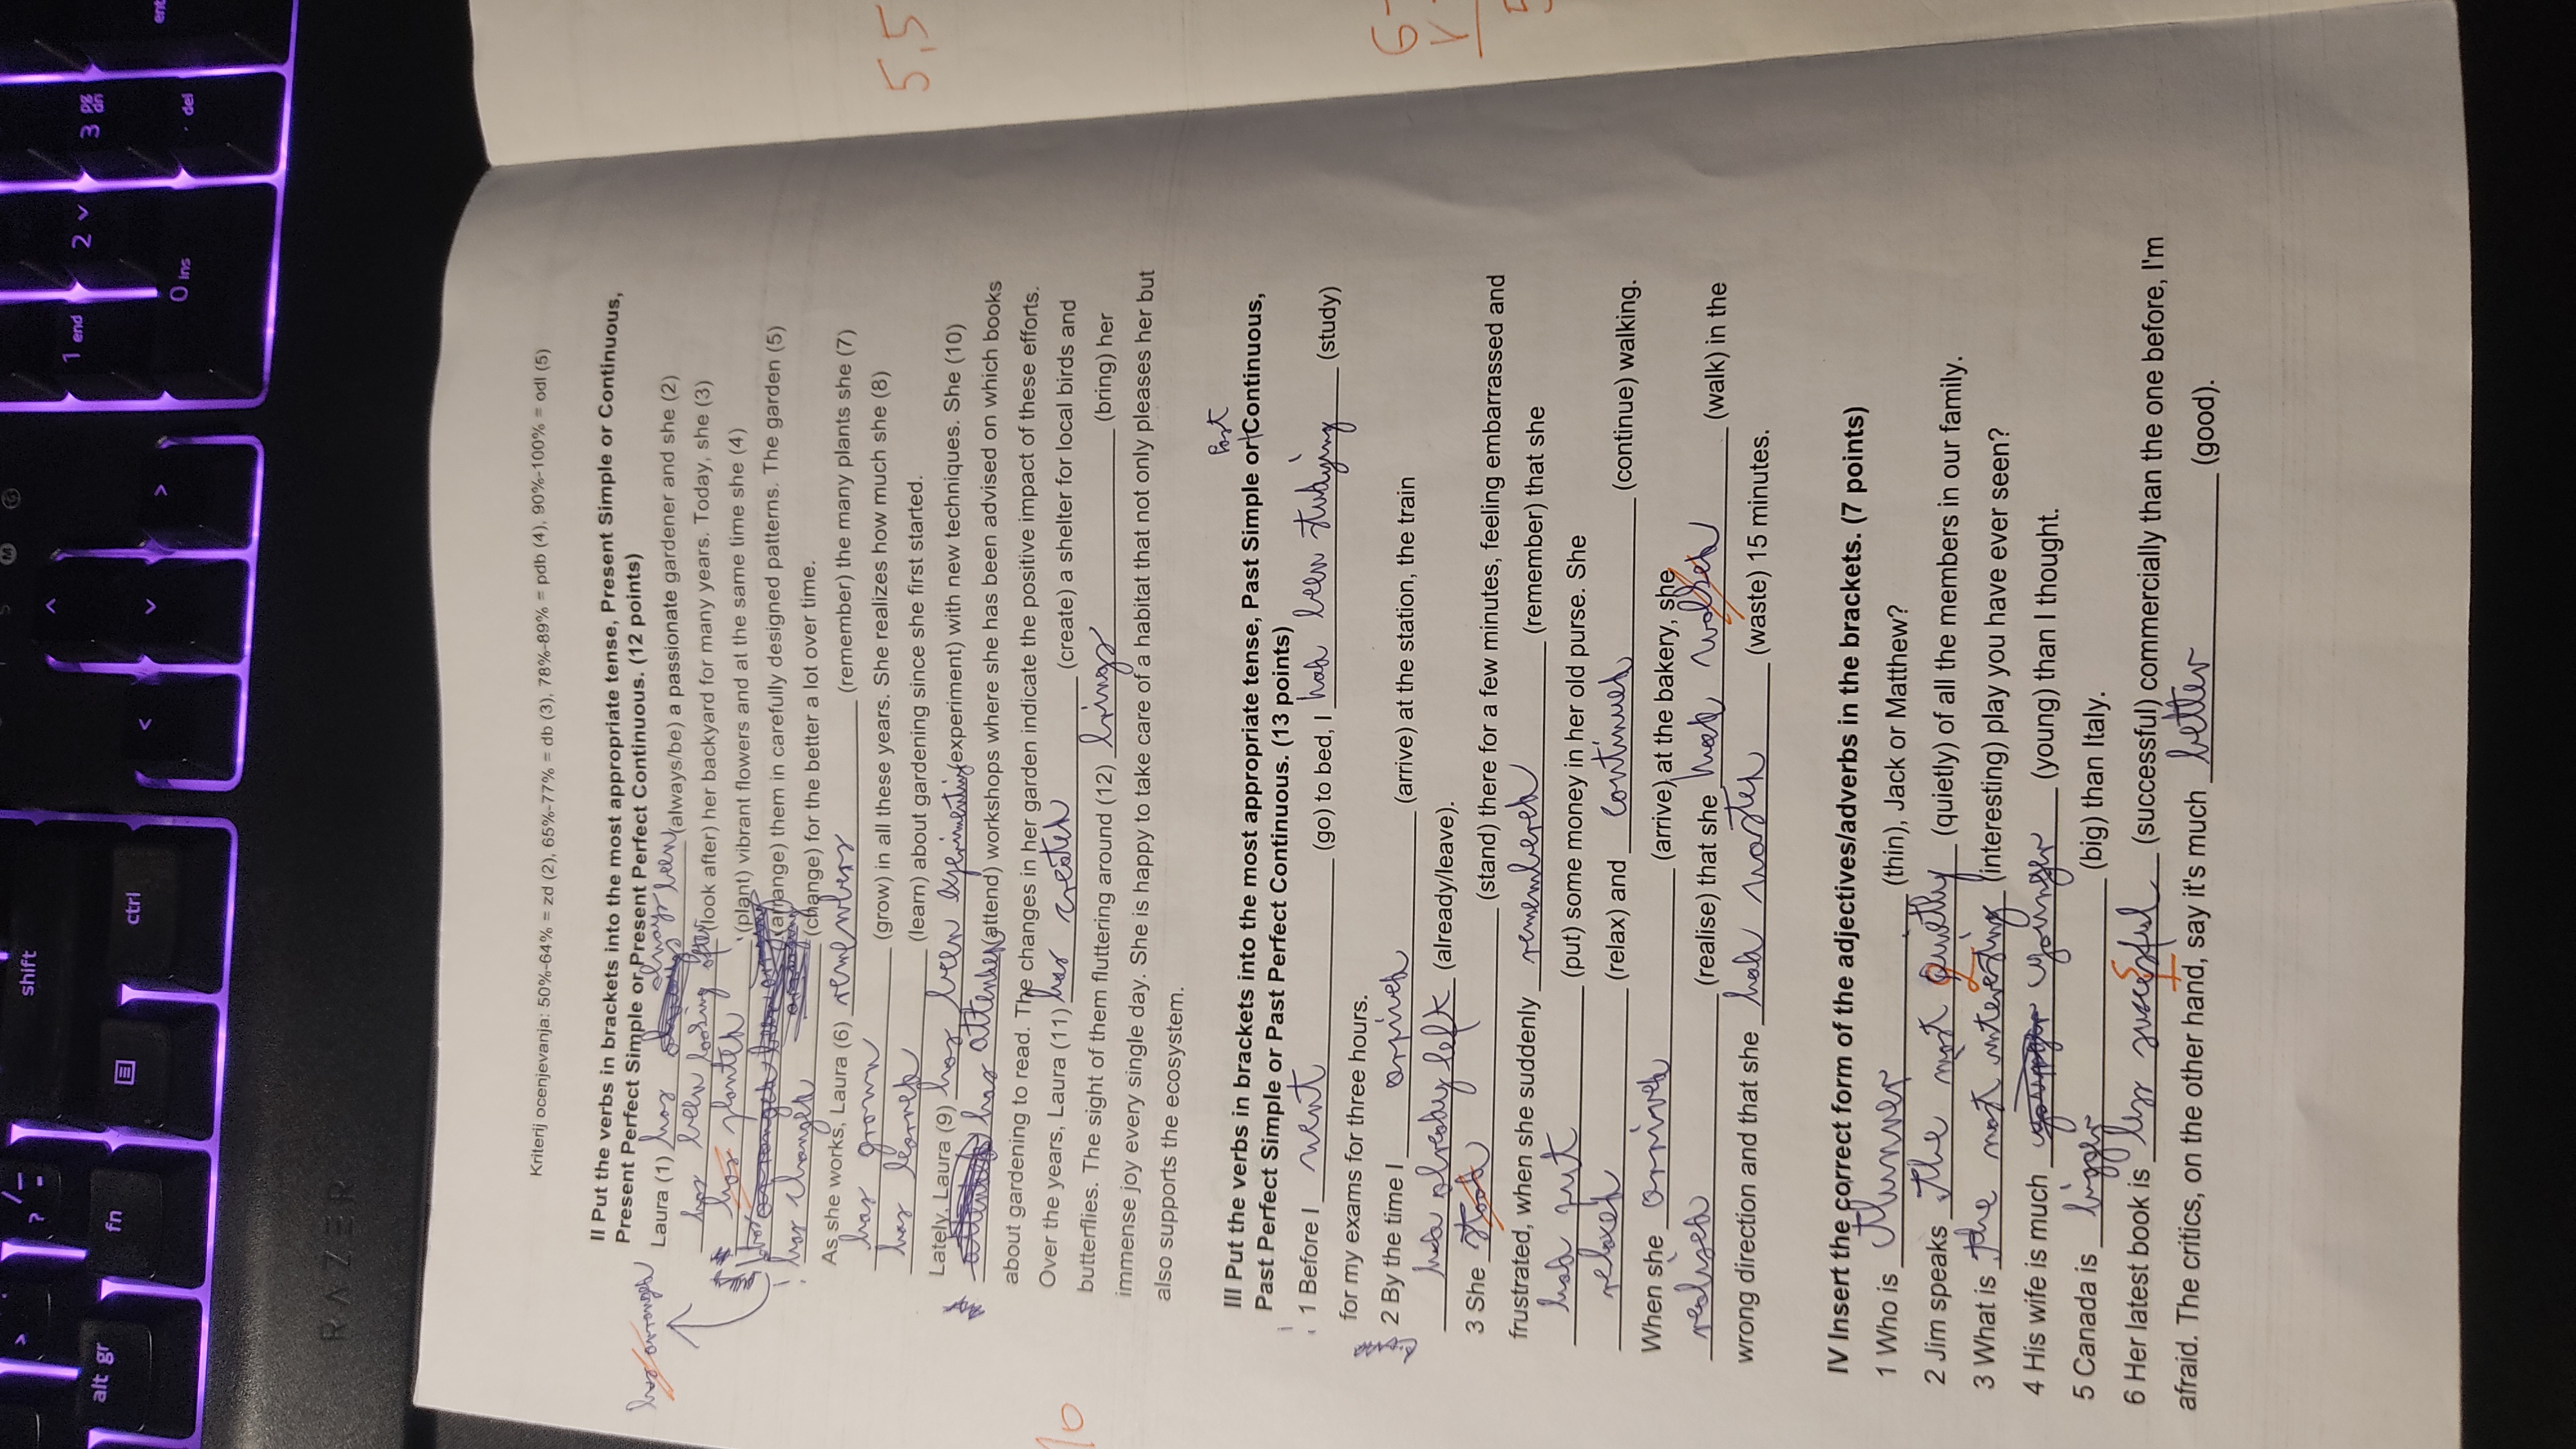 > ? / - shift
alt gr fn ctrl < ^ v > 1 end 2 v 3 pg dn
0 ins . del ent
RAZER
Kriterij ocenjevanja: 50%-64% = zd (2), 65%-77% = db (3), 78%-89% = pdb (4), 90%-100% = odl (5)
II Put the verbs in brackets into the most appropriate tense, Present Simple or Continuous,
Present Perfect Simple or Present Perfect Continuous. (12 points)
has arranged
Laura (1) has always been (always/be) a passionate gardener and she (2)
has been looking after (look after) her backyard for many years. Today, she (3)
has planted (plant) vibrant flowers and at the same time she (4)
(arrange) them in carefully designed patterns. The garden (5)
has changed (change) for the better a lot over time.
As she works, Laura (6) remembers (remember) the many plants she (7)
has grown (grow) in all these years. She realizes how much she (8)
has learned (learn) about gardening since she first started.
Lately, Laura (9) has been experimenting (experiment) with new techniques. She (10)
has attended (attend) workshops where she has been advised on which books
about gardening to read. The changes in her garden indicate the positive impact of these efforts.
Over the years, Laura (11) has created (create) a shelter for local birds and
butterflies. The sight of them fluttering around (12) brings (bring) her
immense joy every single day. She is happy to take care of a habitat that not only pleases her but
also supports the ecosystem.
5,5
Past
III Put the verbs in brackets into the most appropriate tense, Past Simple or Continuous,
Past Perfect Simple or Past Perfect Continuous. (13 points)
1 Before I went (go) to bed, I had been studying (study)
for my exams for three hours.
2 By the time I arrived (arrive) at the station, the train
had already left (already/leave).
3 She stood (stand) there for a few minutes, feeling embarrassed and
frustrated, when she suddenly remembered (remember) that she
had put (put) some money in her old purse. She
relaxed (relax) and continued (continue) walking.
When she arrived (arrive) at the bakery, she
realised (realise) that she had walked (walk) in the
wrong direction and that she had wasted (waste) 15 minutes.
IV Insert the correct form of the adjectives/adverbs in the brackets. (7 points)
1 Who is thinner (thin), Jack or Matthew?
2 Jim speaks the most quietly (quietly) of all the members in our family.
3 What is the most interesting (interesting) play you have ever seen?
4 His wife is much younger (young) than I thought.
5 Canada is bigger (big) than Italy.
6 Her latest book is less succesful (successful) commercially than the one before, I'm
afraid. The critics, on the other hand, say it's much better (good).